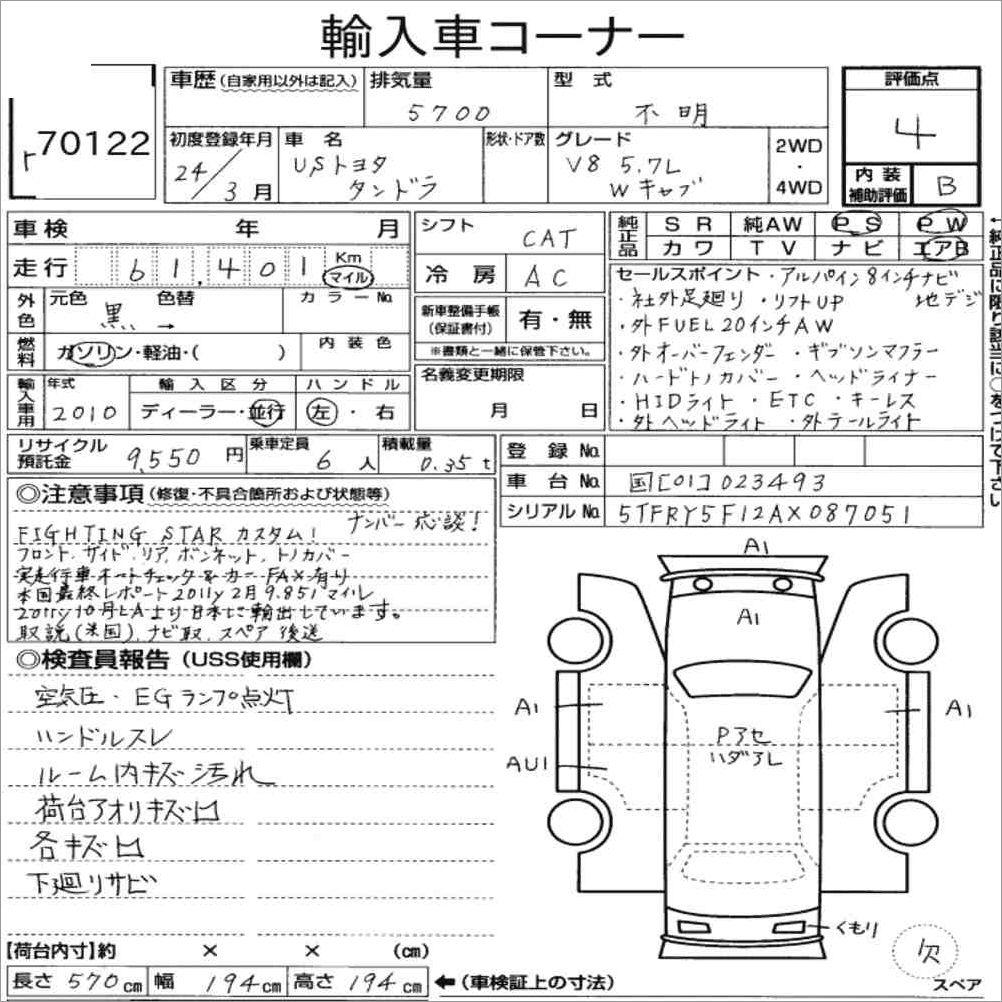 輸入車コーナー
70122
車歴(自家用以外は記入)
排気量
5700
型式
不明
評価点
4
初度登録年月
24/3月
車名
USトヨタ
タンドラ
形状・ドア数
グレード
V8 5.7L
Wキャブ
2WD
・
4WD
内装
補助評価
B
車検 年 月
走行 61,401 Km
マイル
外色
元色 色替 カラーNo.
黒 →
燃料
ガソリン・軽油・( )
内装色
輸入車用
年式
2010
輸入区分
ディーラー・並行
ハンドル
左・右
シフト
CAT
冷房
AC
新車整備手帳
(保証書付)
有・無
※書類と一緒に保管下さい。
名義変更期限
月 日
純正品
SR 純AW PS PW
カワ TV ナビ エアB
←純正品に限り該当に○をつけて下さい
セールスポイント・アルパイン8インチナビ
・社外足廻り・リフトUP 地デジ
・外FUEL20インチAW
・外オーバーフェンダー・ギブソンマフラー
・ハードトノカバー・ヘッドライナー
・HIDライト・ETC・キーレス
・外ヘッドライト・外テールライト
リサイクル
預託金
9,550円
乗車定員
6人
積載量
0.35t
登録No.
車台No.
国[01]023493
シリアルNo.
5TFRY5F12AX087051
◎注意事項(修復・不具合箇所および状態等)
FIGHTING STAR カスタム! ナンバー応談!
フロント.サイド.リア.ボンネット.トノカバー
実走行車オートチェック&カーFAX有り
本国最終レポート2011y2月9.851マイル
2011y10月LAより日本に輸出しています。
取説(米国).ナビ取.スペア後送
◎検査員報告(USS使用欄)
空気圧・EGランプ点灯
ハンドルスレ
ルーム内キズ汚れ
荷台アオリキズ凹
各キズ凹
下廻りサビ
A1
A1
A1
A1
AU1
Pアセ
ハダアレ
くもり
欠
スペア
【荷台内寸】約 × × (cm)
長さ 570cm 幅 194cm 高さ 194cm ←(車検証上の寸法)